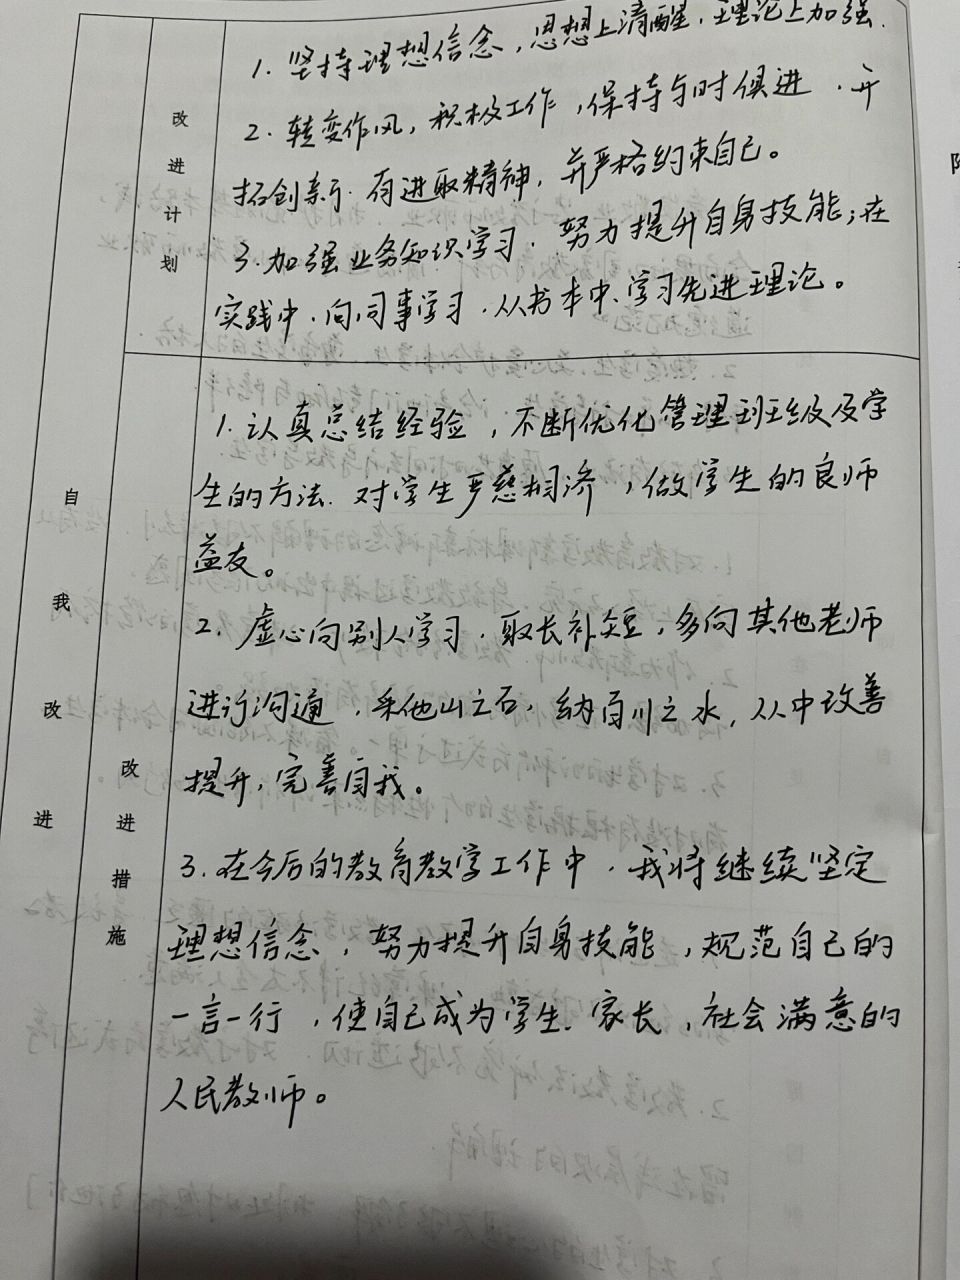 自我改进
改进计划
1. 坚持理想信念，思想上清醒，理论上加强.
2. 转变作风，积极工作，保持与时俱进．开
拓创新．有进取精神，并严格约束自己。
3. 加强业务知识学习．努力提升自身技能；在
实践中．向同事学习．从书本中、学习先进理论。
改进措施
1. 认真总结经验，不断优化管理到班级及学
生的方法．对学生严慈相济，做学生的良师
益友。
2. 虚心向别人学习．取长补短，多向其他老师
进行沟通，采他山之石，纳百川之水，从中改善
提升，完善自我。
3. 在今后的教育教学工作中．我将继续坚定
理想信念，努力提升自身技能，规范自己的
一言一行，使自己成为学生、家长，社会满意的
人民教师。